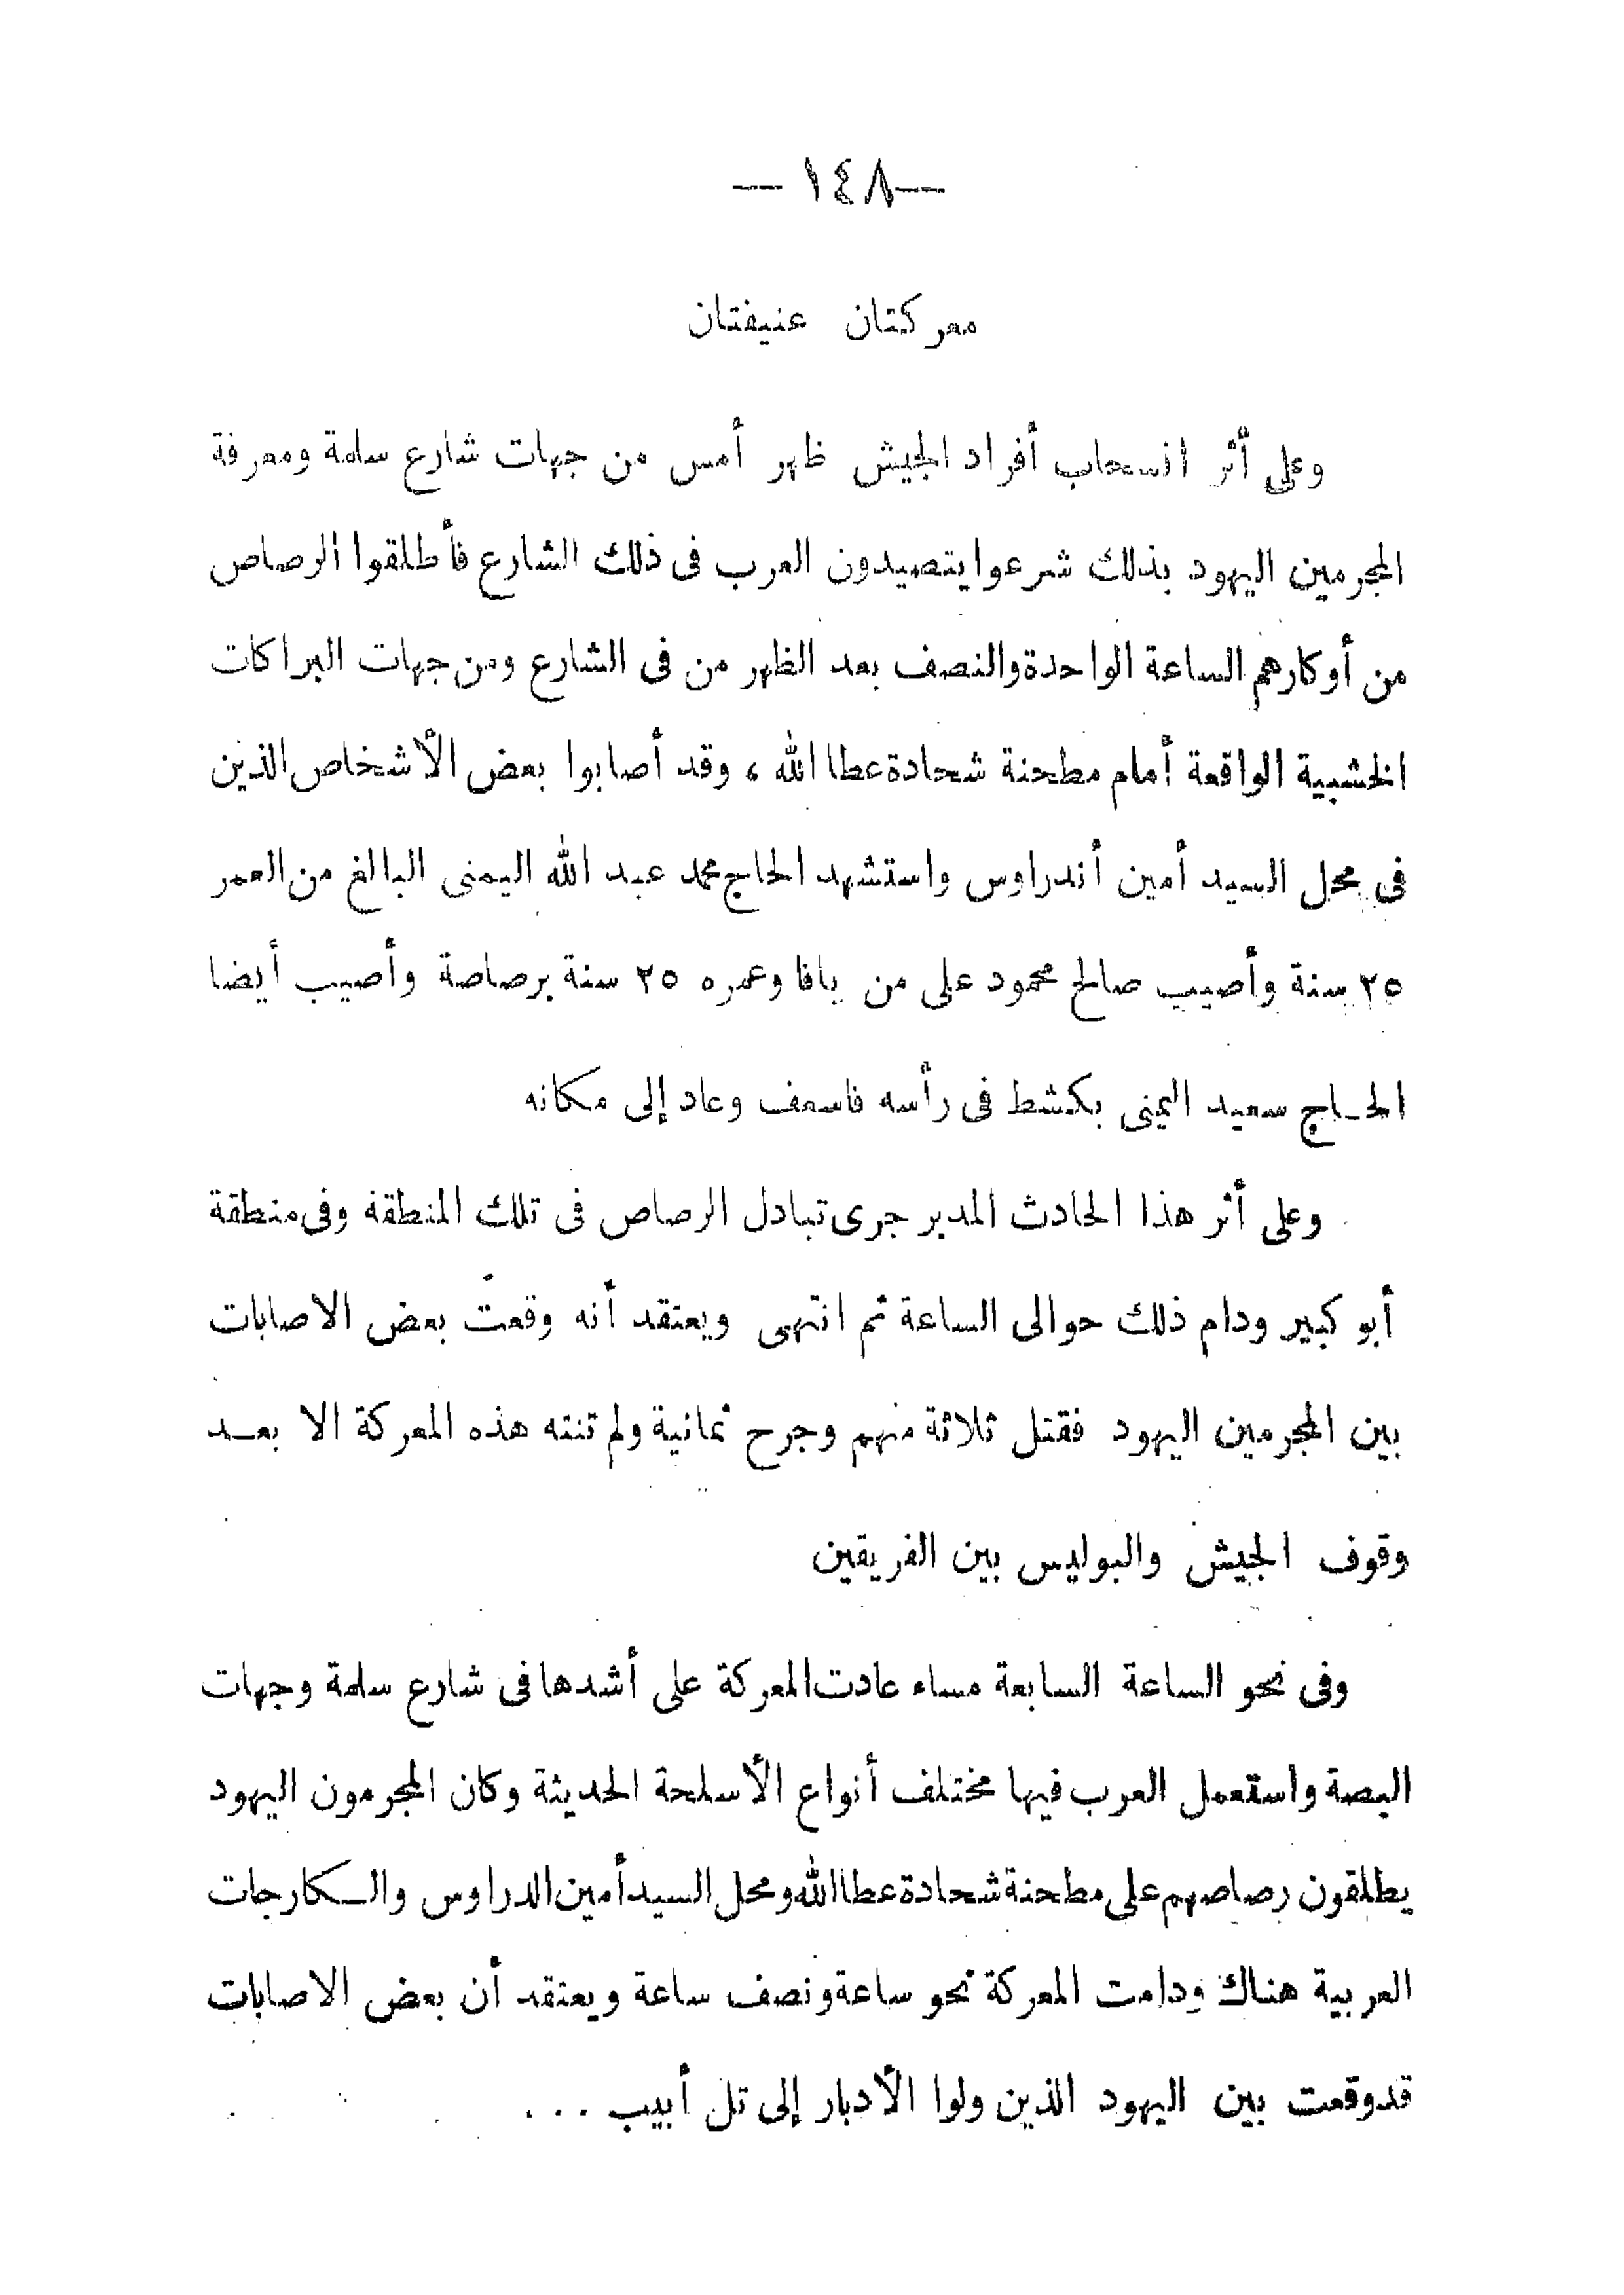 — ١٤٨ —
معركتان عنيفتان
وعلى أثر انسحاب أفراد الجيش ظهر أمس من جهات شارع سلمة ومعرفة
المجرمين اليهود بذلك شرعوا يتصيدون العرب فى ذلك الشارع فأطلقوا الرصاص
من أوكارهم الساعة الواحدة والنصف بعد الظهر من فى الشارع ومن جهات البراكات
الخشبية الواقعة أمام مطحنة شحادة عطا الله ، وقد أصابوا بعض الأشخاص الذين
فى محل السيد أمين أندراوس واستشهد الحاج محمد عبد الله اليمنى البالغ من العمر
٢٥ سنة وأصيب صالح محمود على من يافا وعمره ٢٥ سنة برصاصة وأصيب أيضا
الحـاج سعيد اليمنى بكشط فى رأسه فاسعف وعاد إلى مكانه
وعلى أثر هذا الحادث المدبر جرى تبادل الرصاص فى تلك المنطقة وفى منطقة
أبو كبير ودام ذلك حوالى الساعة ثم انتهى ويعتقد أنه وقعت بعض الاصابات
بين المجرمين اليهود فقتل ثلاثة منهم وجرح ثمانية ولم تنته هذه المعركة الا بعــد
وقوف الجيش والبوليس بين الفريقين
وفى نحو الساعة السابعة مساء عادت المعركة على أشدها فى شارع سلمة وجهات
البصة واستعمل العرب فيها مختلف أنواع الأسلحة الحديثة وكان المجرمون اليهود
يطلقون رصاصهم على مطحنة شحادة عطا الله ومحل السيد أمين الدراوس والـكارجات
العربية هناك ودامت المعركة نحو ساعة ونصف ساعة ويعتقد أن بعض الاصابات
قد وقعت بين اليهود الذين ولوا الأدبار إلى تل أبيب . . .